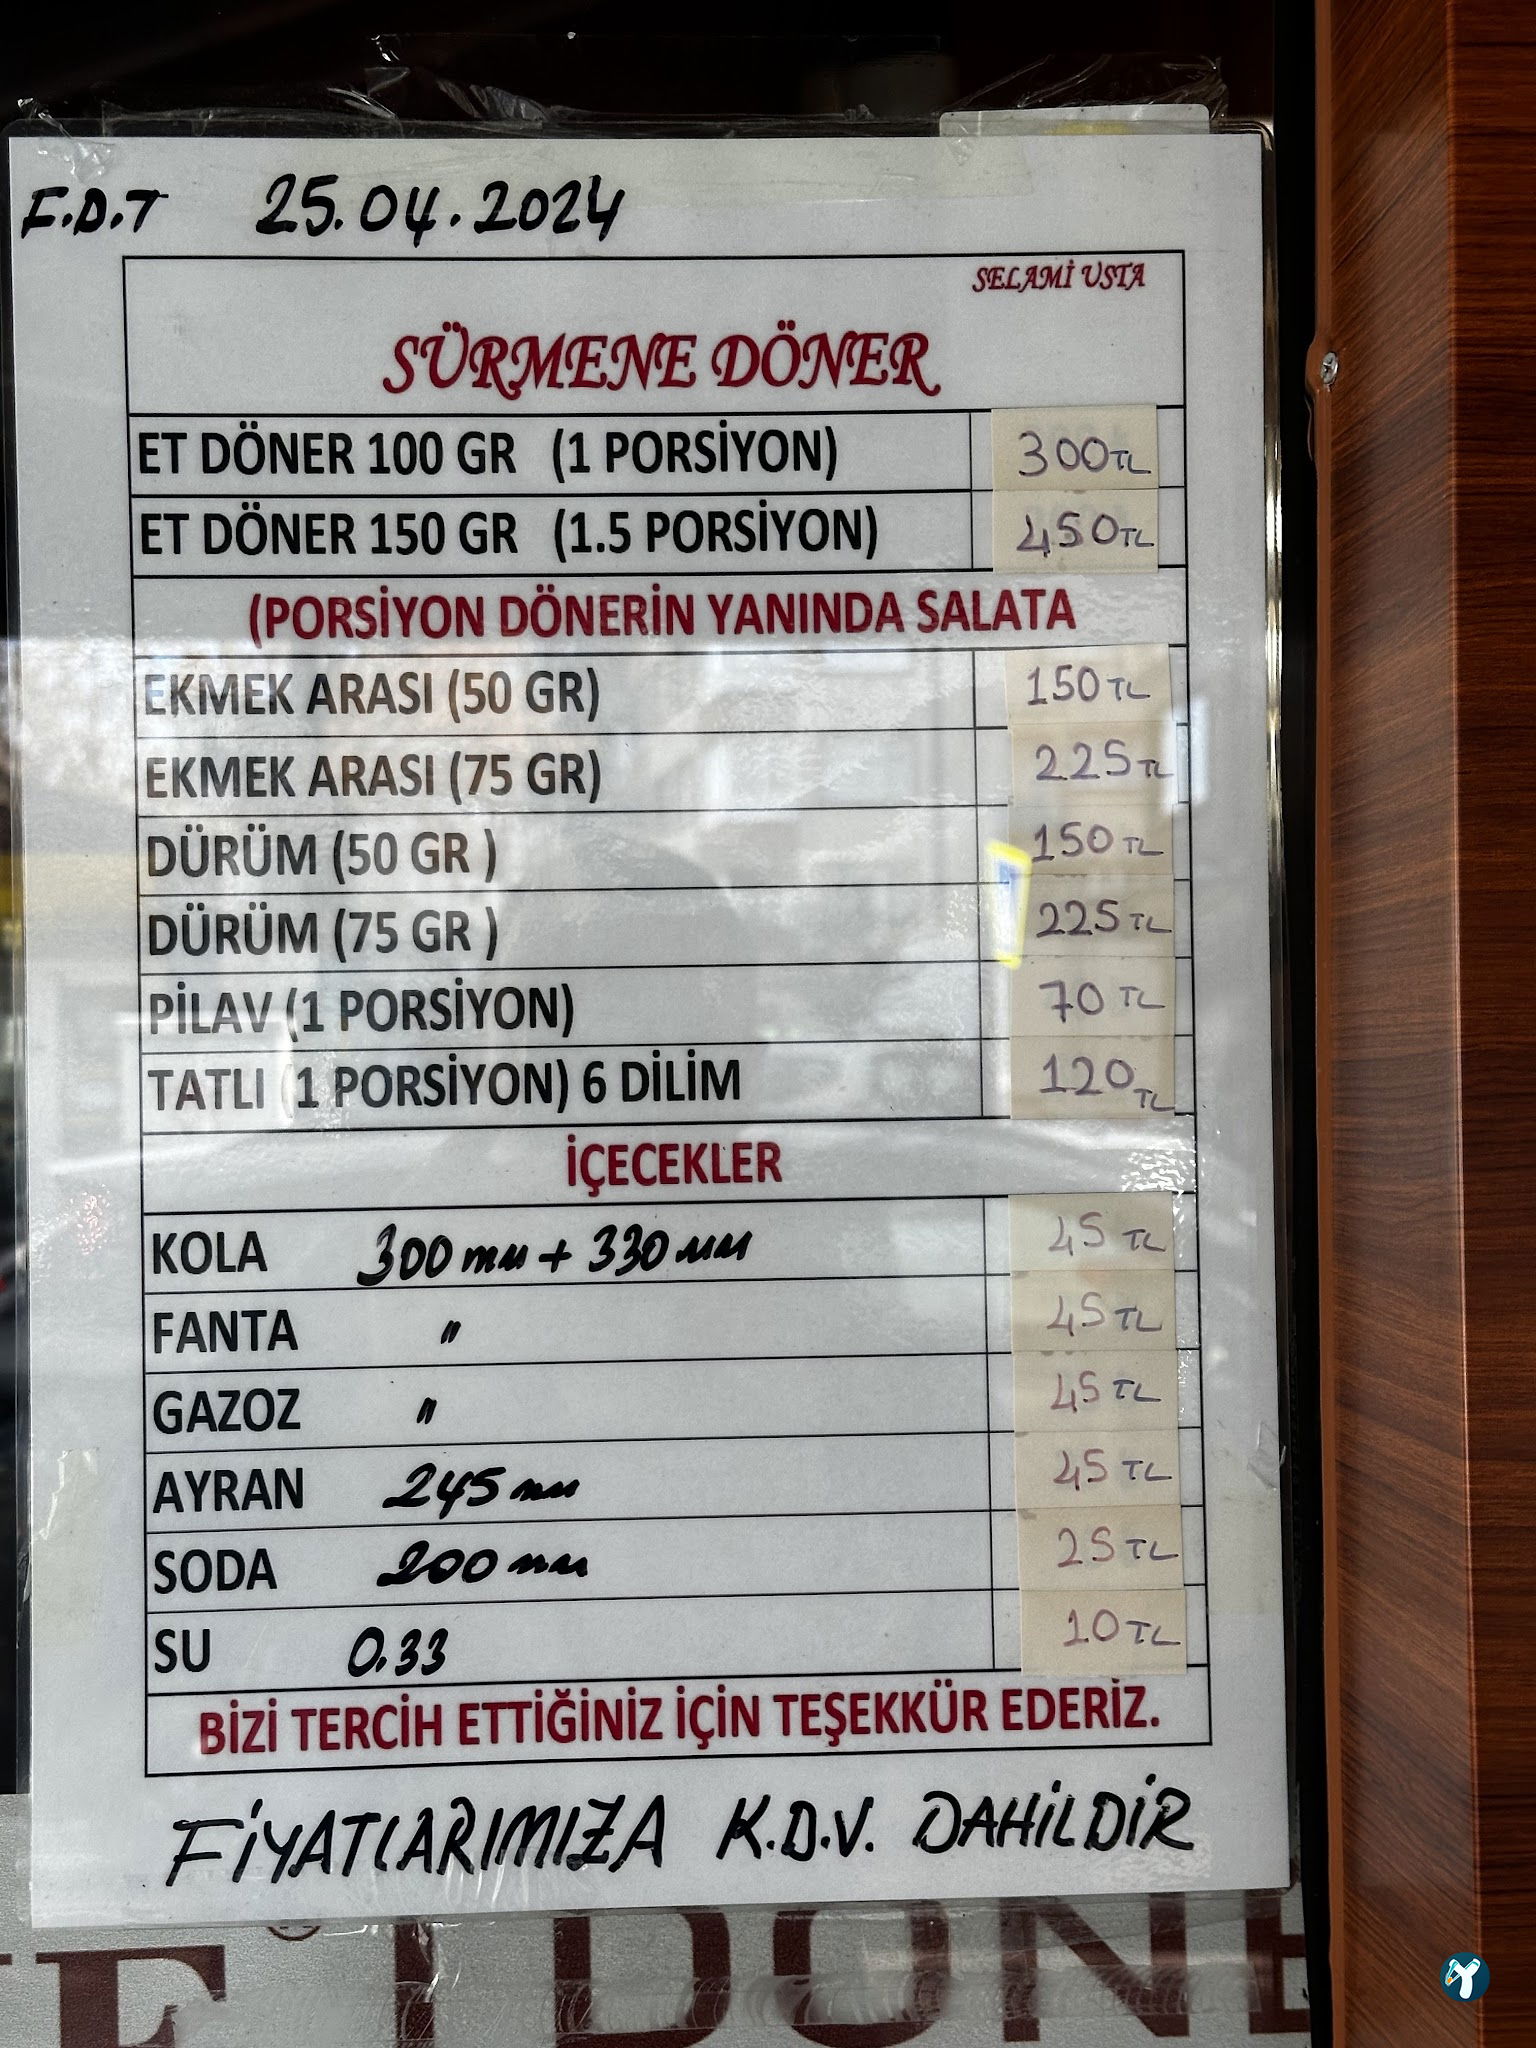 F.D.T 25.04.2024
SELAMİ USTA
SÜRMENE DÖNER
ET DÖNER 100 GR (1 PORSİYON) 300 TL
ET DÖNER 150 GR (1.5 PORSİYON) 450 TL
(PORSİYON DÖNERİN YANINDA SALATA
EKMEK ARASI (50 GR) 150 TL
EKMEK ARASI (75 GR) 225 TL
DÜRÜM (50 GR ) 150 TL
DÜRÜM (75 GR ) 225 TL
PİLAV (1 PORSİYON) 70 TL
TATLI (1 PORSİYON) 6 DİLİM 120 TL
İÇECEKLER
KOLA 300 ml + 330 ml 45 TL
FANTA " 45 TL
GAZOZ " 45 TL
AYRAN 245 ml 45 TL
SODA 200 ml 25 TL
SU 0.33 10 TL
BİZİ TERCİH ETTİĞİNİZ İÇİN TEŞEKKÜR EDERİZ.
FİYATLARIMIZA K.D.V. DAHİLDİR
E® DÖNE